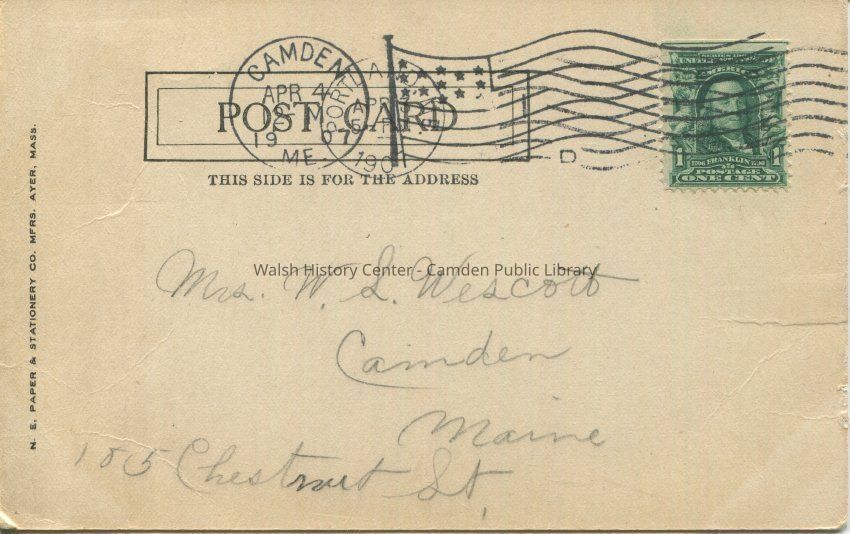 CAMDEN
APR 4
19 07
ME
PORTLAND
APR
190
POST CARD
THIS SIDE IS FOR THE ADDRESS
D
SERIES 1902
UNITED STATES OF AMERICA
1706 FRANKLIN 1790
1 1
POSTAGE
ONE CENT
N. E. PAPER & STATIONERY CO. MFRS. AYER, MASS.
Walsh History Center - Camden Public Library
Mrs. W. L. Wescott
Camden
Maine
185 Chestnut St.